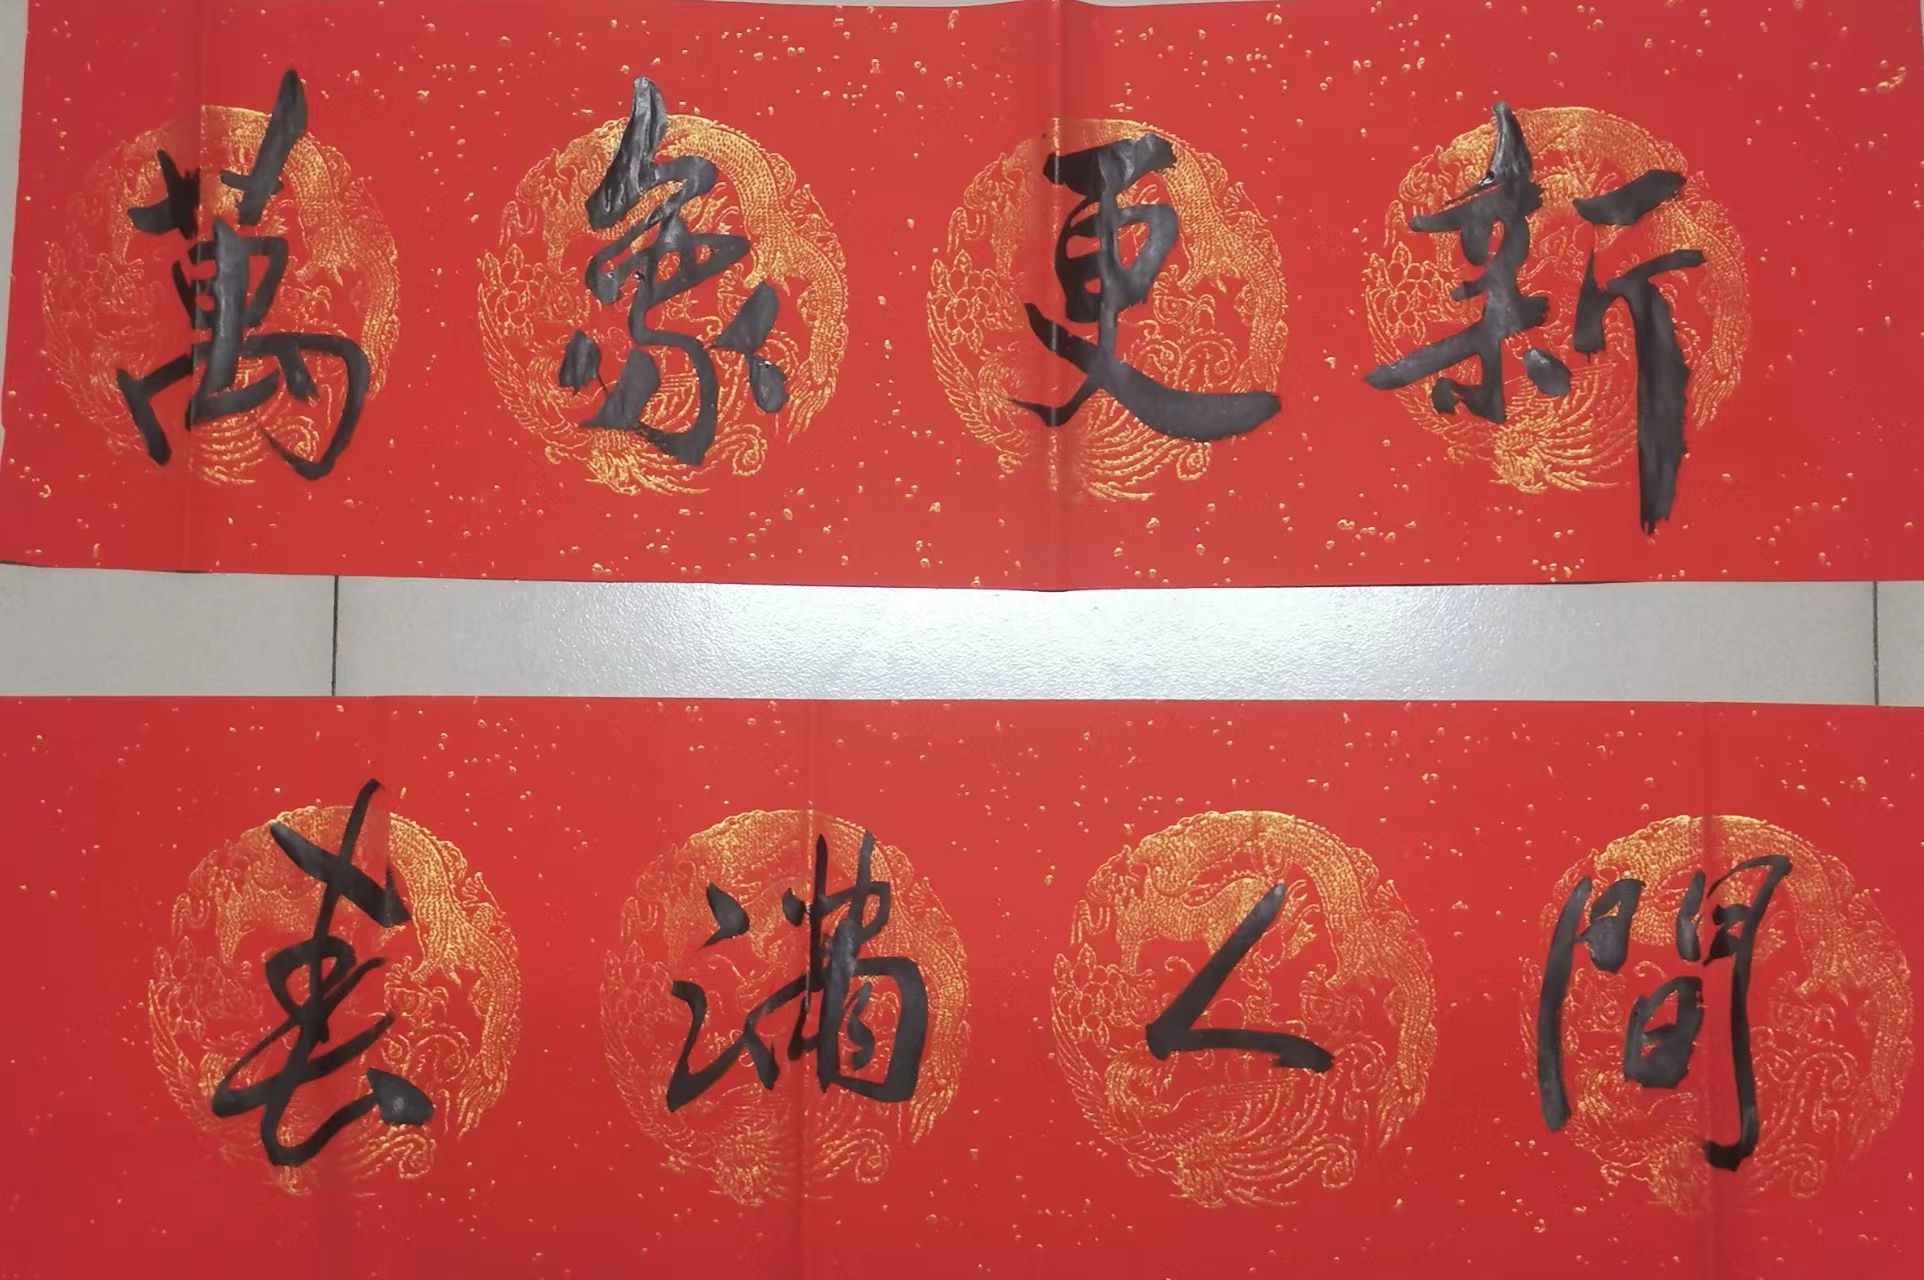 萬象更新
春滿人間